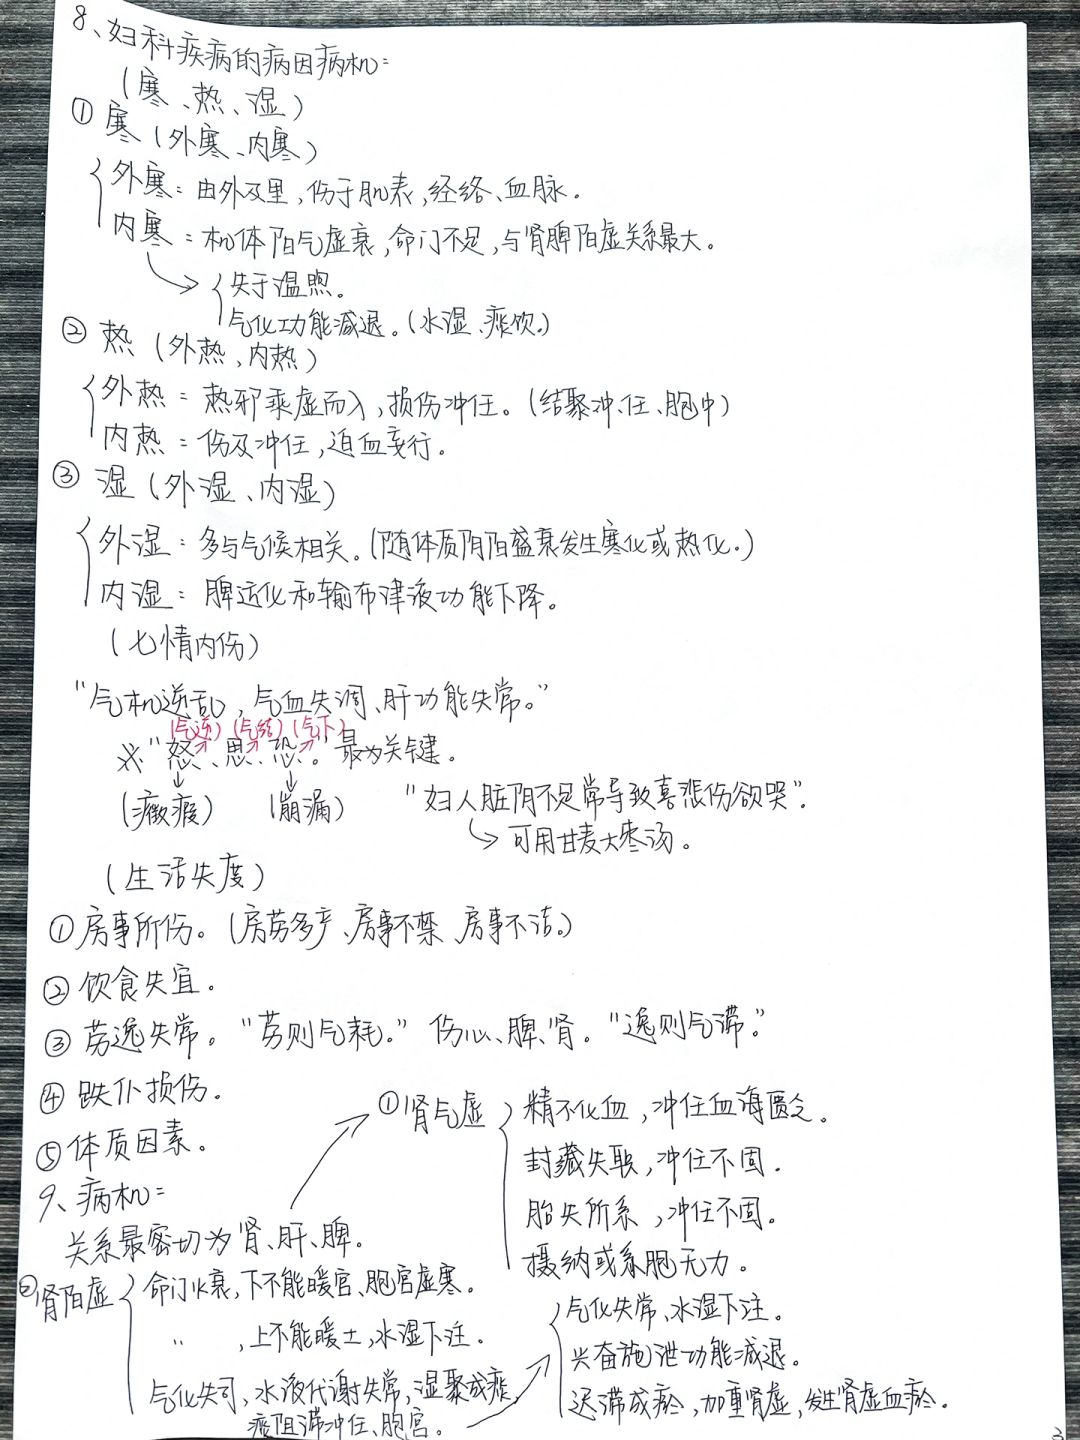 8、妇科疾病的病因病机：
（寒、热、湿）
① 寒（外寒、内寒）
外寒：由外及里，伤于肌表，经络、血脉。
内寒：机体阳气虚衰，命门不足，与肾脾阳虚关系最大。
失于温煦。
气化功能减退。（水湿、痰饮。）
② 热（外热，内热）
外热：热邪乘虚而入，损伤冲任。（结聚冲、任、胞中）
内热：伤及冲任，迫血妄行。
③ 湿（外湿、内湿）
外湿：多与气候相关。（随体质阴阳盛衰发生寒化或热化。）
内湿：脾运化和输布津液功能下降。
（七情内伤）
“气机逆乱，气血失调、肝功能失常。”
（气逆）（气结）（气下）
※“怒、思、恐。”最为关键。
（癥瘕） （崩漏） “妇人脏阴不足常导致喜悲伤欲哭”。
可用甘麦大枣汤。
（生活失度）
①房事所伤。（房劳多产、房事不禁、房事不洁。）
②饮食失宜。
③劳逸失常。“劳则气耗。”伤心、脾、肾。“逸则气滞。”
④跌仆损伤。
⑤体质因素。
9、病机：
关系最密切为肾、肝、脾。
①肾气虚
精不化血，冲任血海匮乏。
封藏失职，冲任不固。
胎失所系，冲任不固。
摄纳或系胞无力。
②肾阳虚
命门火衰，下不能暖宫、胞宫虚寒。
〃 ，上不能暖土，水湿下注。
气化失司，水液代谢失常，湿聚成痰，
痰阻滞冲任、胞宫。
气化失常、水湿下注。
兴奋施泄功能减退。
迟滞成瘀，加重肾虚，发生肾虚血瘀。
3